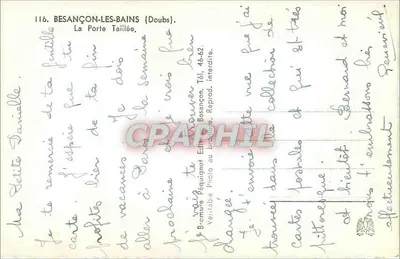 116. BESANÇON-LES-BAINS (Doubs).
La Porte Taillée.
Ma Petite Danielle.
Je te remercie de ta gentille
carte. J'espère que tu
profites bien de ta fin
de vacances. Je dois
aller à Paris la semaine
prochaine et j'irais pas
te retrouver bien
changée.
Je t'envoie cette vue que j'ai
trouvée dans une collection de
cartes postales et qui est très
pittoresque.
et bientôt Bernard et moi
nous t'embrassons bien
affectueusement Geneviève.
Bromure Péquignot Edit. Besançon, Tél. 46-62.
Véritable Photo au Reprod. interdite.
CPAPHIL.COM